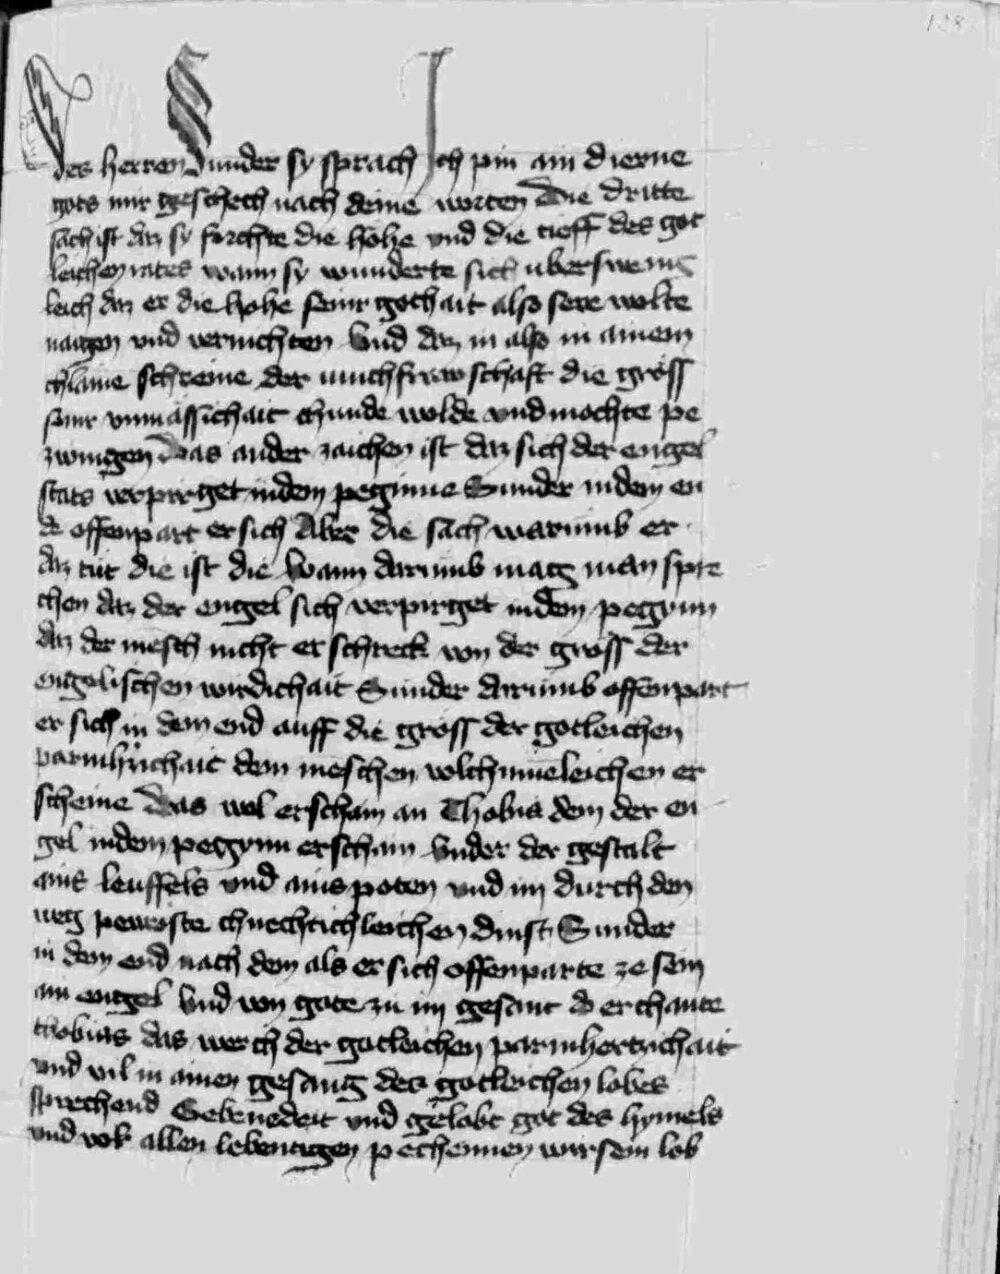 128
des herren Sunder sy sprach Ich pin ain dierne
gots mir geschech nach deine worten Die dritte
sach ist daz sy forchte die hohe vnd die tieff des got
leichen rates wann sy wunderte sich uberswenig
leich daz er die hohe seinr gothait also sere wolte
naigen vnd vernichten Vnd daz in also in ainem
chlaine schreine der iunchfrawschaft die gröss
seinr vnmässichait chunde wolde vnd mochte pe
zwingen Das ander zaichen ist daz sich der engel
stäts verpirget in dem peginne Sunder in dem en
de offenpart er sich Aber die sach warumb er
daz tut die ist die Wann darumb mag man spre
chen daz der engel sich verpirget in dem pegynn
daz der mesch nicht erschreck von der gröss der
engelischen wirdichait Sunder darumb offenpart
er sich in dem end auff die gröss der gotleichen
parmhr̄ichait dem meschen volchumēleichen er
scheine Das wol erschain an Thobia dem der en
gel in dem pegynn erschain Vnder der gestalt
ains leuffels vnd ains poten vnd im durch den
weg peweiste chnechtichleichen dinst Sunder
in dem end nach dem als er sich offenparte ze sein
ain engel Vnd von gote zu im gesant do erchante
thobias das werch der gotleichen parmhertzichait
vnd vil in ainen gesang des gotleichen lobes
sprechend Gebenedeit vnd gelobt got des hymels
vnd vor allen lebentigen pechennen wir sein lob